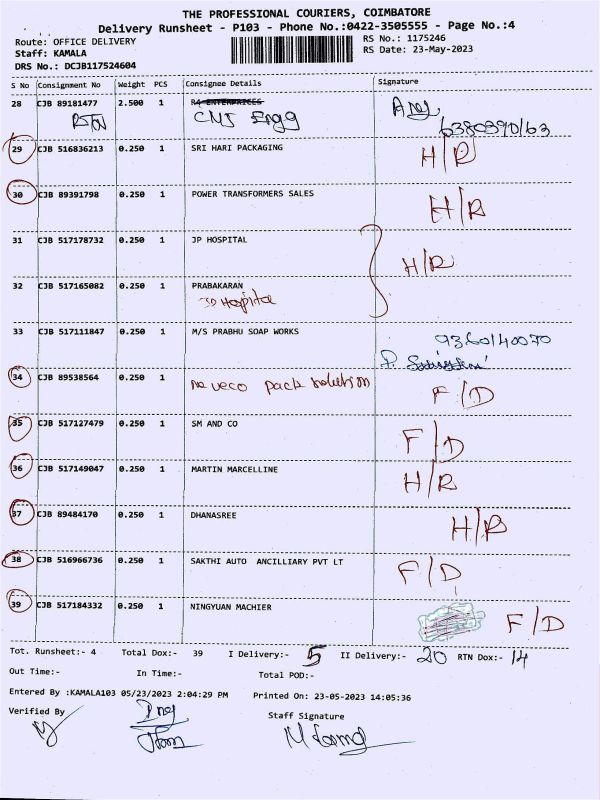 THE PROFESSIONAL COURIERS, COIMBATORE
Delivery Runsheet - P103 - Phone No.:0422-3505555 - Page No.:4
Route: OFFICE DELIVERY RS No.: 1175246
Staff: KAMALA RS Date: 23-May-2023
DRS No.: DCJB117524604
S No Consignment No Weight PCS Consignee Details Signature
28 CJB 89181477 2.500 1 R4 ENTERPRICES
RTN CMJ Engg
29 CJB 516836213 0.250 1 SRI HARI PACKAGING H/R
30 CJB 89391798 0.250 1 POWER TRANSFORMERS SALES H/R
31 CJB 517178732 1 JP HOSPITAL
0.250 H/R
32 CJB 517165082 0.250 1 PRABAKARAN
JP Hospital
33 CJB 517111847 0.250 1 M/S PRABHU SOAP WORKS
9360140070
34 CJB 89538564 0.250 1 naveco pack solution F/D
35 CJB 517127479 0.250 1 SM AND CO F/D
36 CJB 517149047 0.250 1 MARTIN MARCELLINE H/R
37 CJB 89484170 0.250 1 DHANASREE H/R
38 CJB 516966736 0.250 1 SAKTHI AUTO ANCILLIARY PVT LT F/D
39 CJB 517184332 0.250 1 NINGYUAN MACHIER F/D
Tot. Runsheet:- 4 Total Dox:- 39 I Delivery:- 5 II Delivery:- 20 RTN Dox:- 14
Out Time:- In Time:- Total POD:-
Entered By :KAMALA103 05/23/2023 2:04:29 PM Printed On: 23-05-2023 14:05:36
Verified By Staff Signature